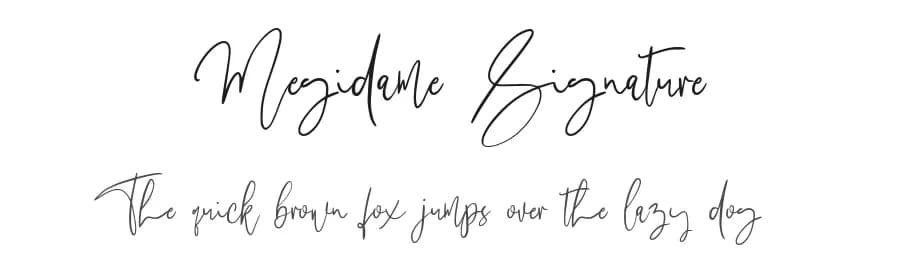 Megidame Signature
The quick brown fox jumps over the lazy dog